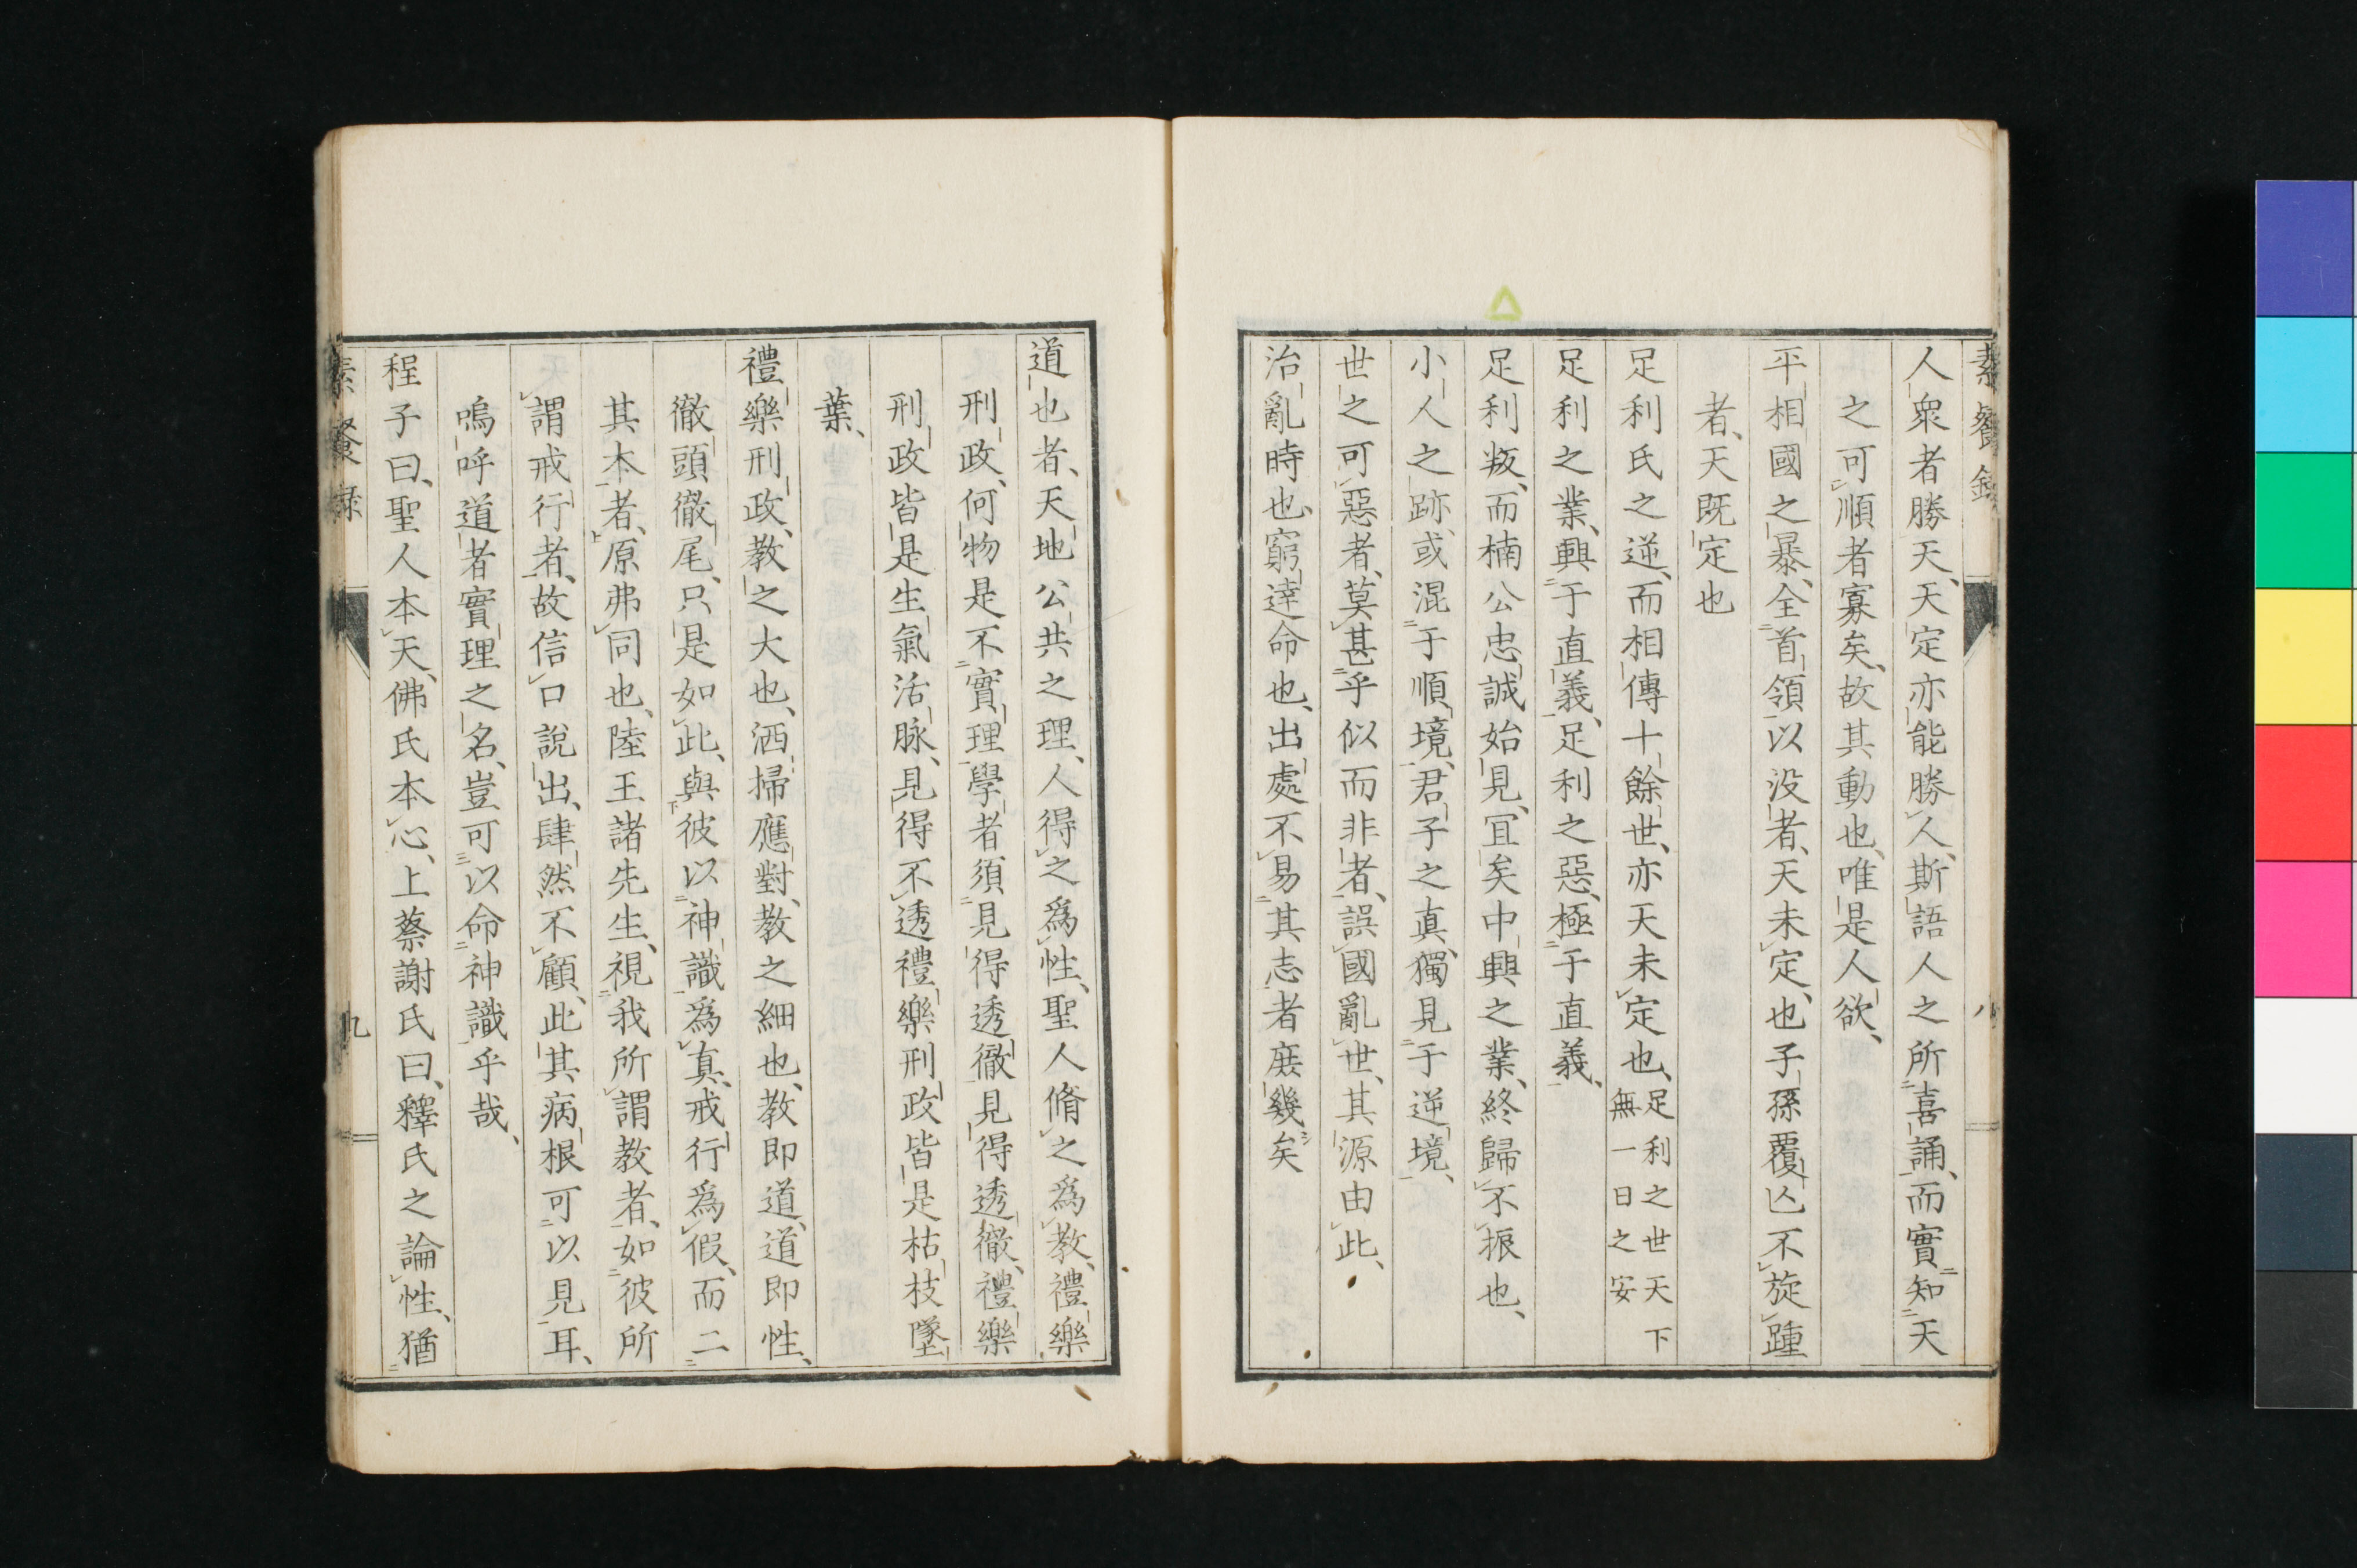 素餐錄
八
人衆者勝天、天定亦能勝人、斯語人之所喜誦、而實知天
之可順者寡矣、故其動也、唯是人欲、
平相國之暴、全首領以没者、天未定也、子孫覆亾不旋踵
者、天既定也
足利氏之逆、而相傳十餘世、亦天未定也、足利之世天下無一日之安
足利之業、興于直義、足利之惡、極于直義、
足利叛、而楠公忠誠始見、冝矣中興之業、終歸不振也、
小人之跡、或混于順境、君子之真、獨見于逆境、
世之可惡者、莫甚乎似而非者、誤國亂世、其源由此、
治亂時也、窮達命也、出處不易其志者庶幾矣
道也者、天地公共之理、人得之爲性、聖人脩之爲教、禮樂
刑政、何物是不實理、學者須見得透徹、見得透徹、禮樂
刑政皆是生氣活脉、見得不透禮樂刑政皆是枯枝墜
葉、
禮樂刑政、教之大也、洒掃應對、教之細也、教即道、道即性、
徹頭徹尾、只是如此、與彼以神識爲真、戒行爲假、而二
其本者、原弗同也、陸王諸先生、視我所謂教者、如彼所
謂戒行者、故信口說出、肆然不顧、此其病根可以見耳、
嗚呼道者實理之名、豈可以命神識乎哉、
程子曰、聖人本天、佛氏本心、上蔡謝氏曰、釋氏之論性、猶
素餐録
九